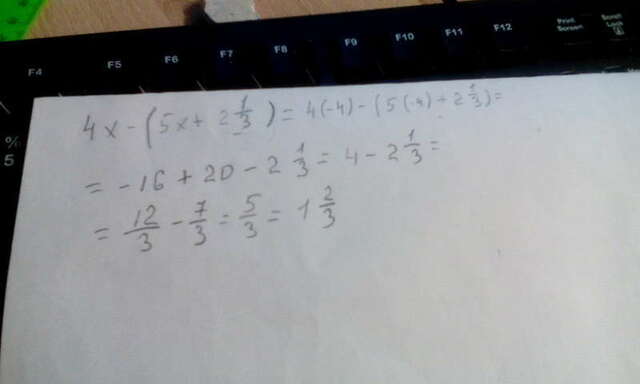 F4 F5 F6 F7 F8 F9 F10 F11 F12 Print Screen Scroll Lock
% 5
4x - (5x + 2 1/3) = 4(-4) - (5(-4) + 2 1/3) =
= -16 + 20 - 2 1/3 = 4 - 2 1/3 =
= 12/3 - 7/3 = 5/3 = 1 2/3